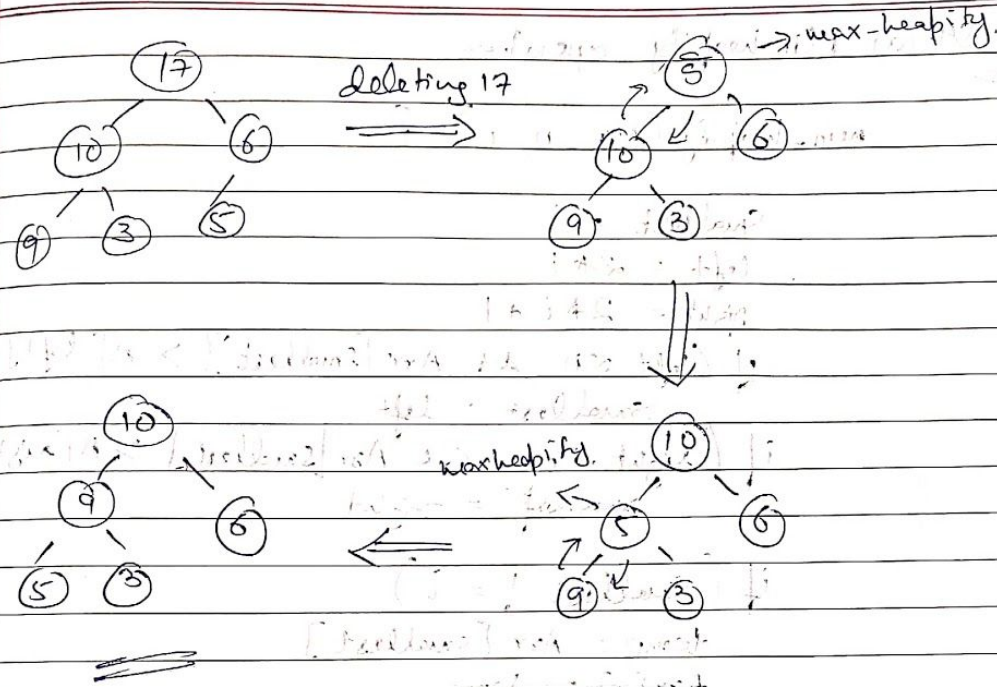 17
10 6
9 3 5
deleting 17
5 → max-heapify
10 6
9 3
10
5 6
9 3
maxheapify
10
9 6
5 3